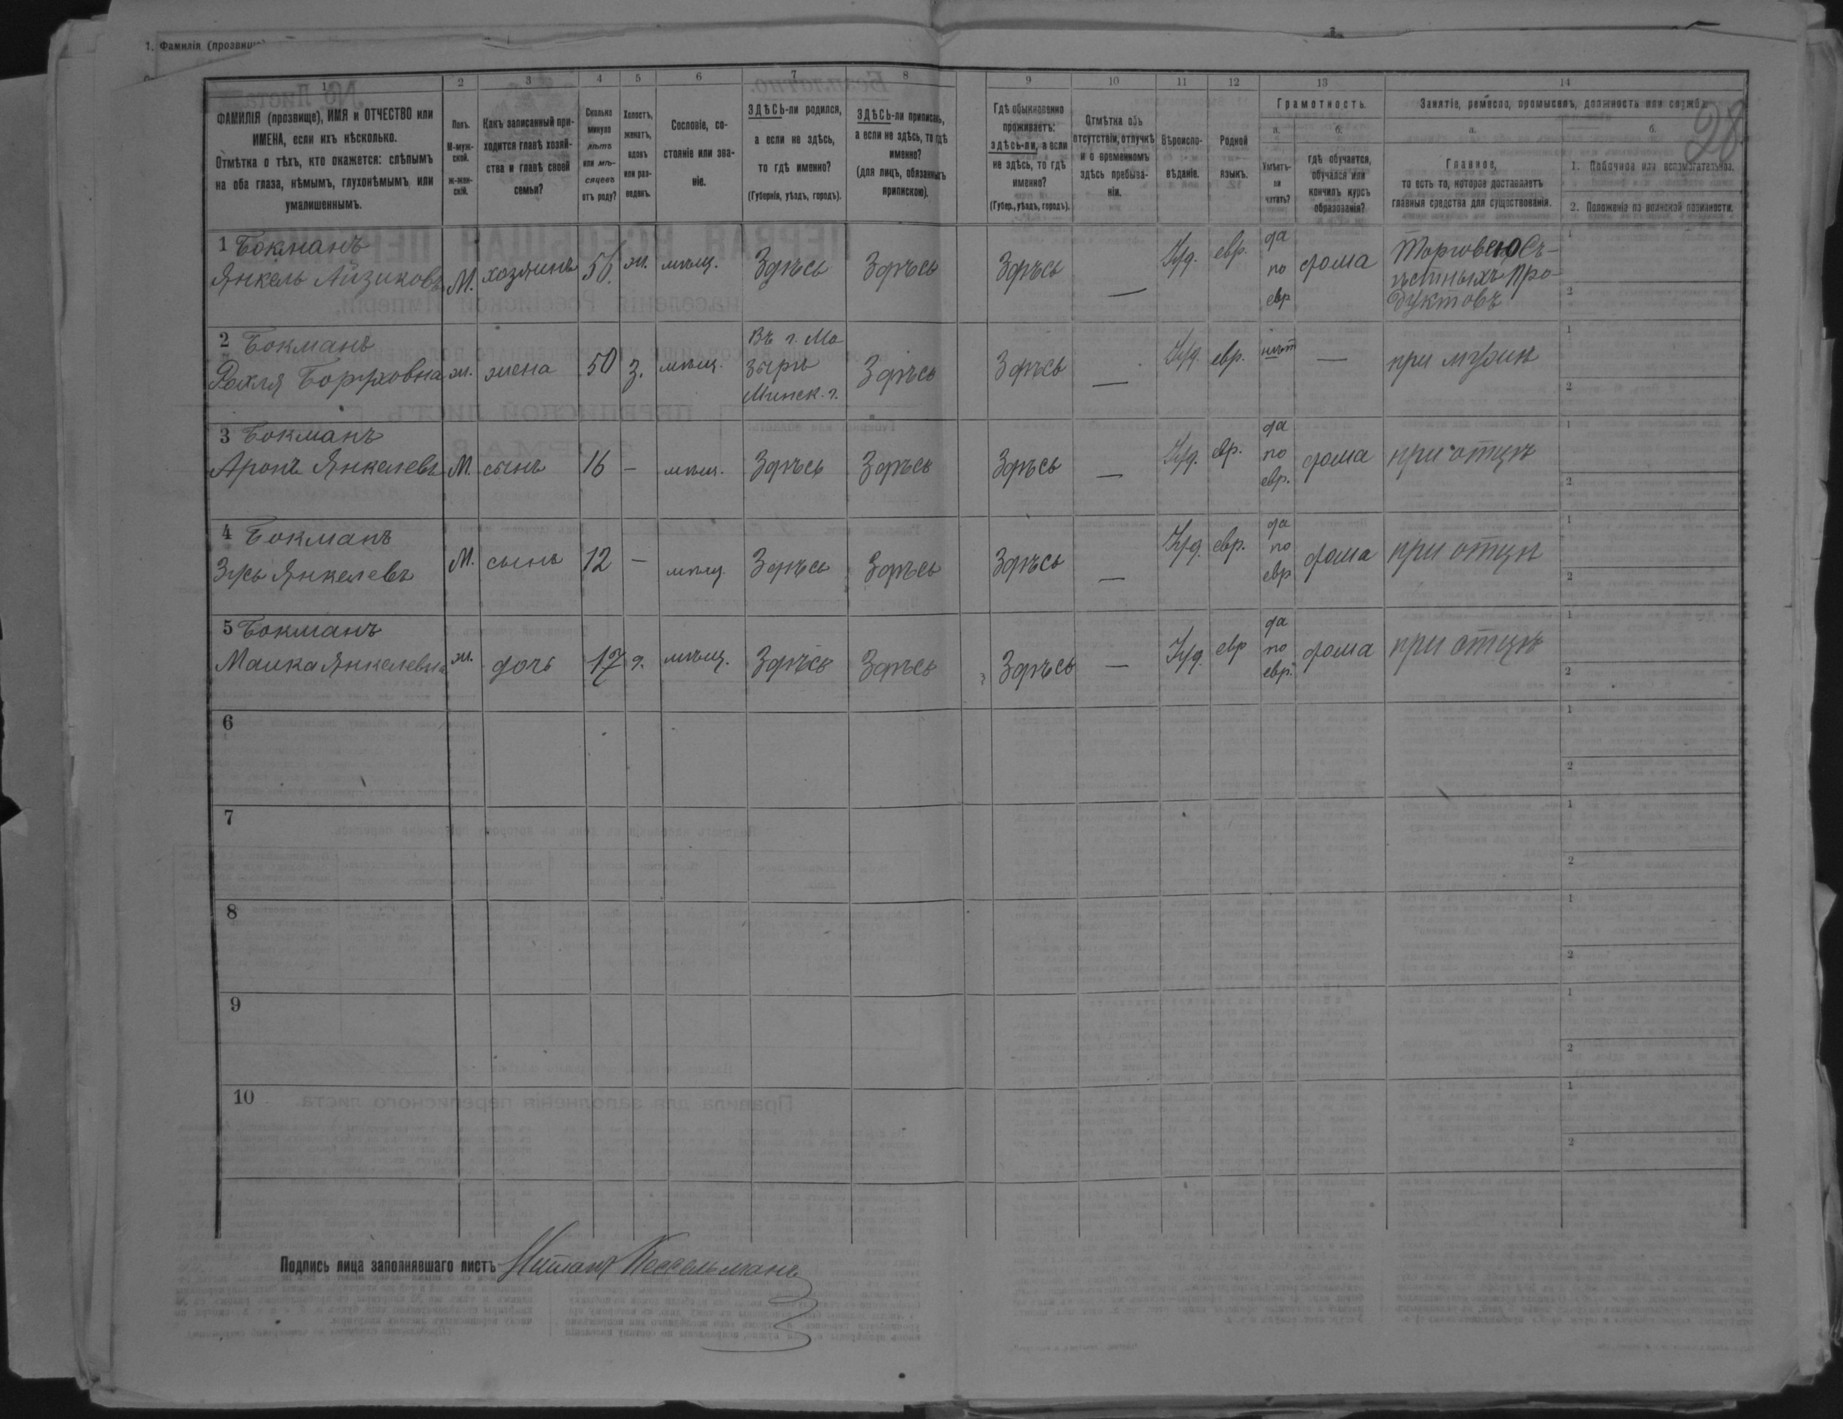 1. Фамилія (прозвище)
1 2 3 4 5 6 7 8 9 10 11 12 13 14
28
ФАМИЛІЯ (прозвище), ИМЯ и ОТЧЕСТВО или
ИМЕНА, если ихъ нѣсколько.
Отмѣтка о тѣхъ, кто окажется: слѣпымъ
на оба глаза, нѣмымъ, глухонѣмымъ или
умалишеннымъ.
Полъ.
М-муж-
ской.
Ж-жен-
скій.
Какъ записанный при-
ходится главѣ хозяй-
ства и главѣ своей
семьи?
Сколько
минуло
лѣтъ
или мѣ-
сяцевъ
отъ роду?
Холостъ,
женатъ,
вдовъ
или раз-
веденъ.
Сословіе, со-
стояніе или зва-
ніе.
ЗДѢСЬ-ли родился,
а если не здѣсь,
то гдѣ именно?
(Губернія, уѣздъ, городъ).
ЗДѢСЬ-ли приписанъ,
а если не здѣсь, то гдѣ
именно?
(для лицъ, обязанныхъ
припискою).
Гдѣ обыкновенно
проживаетъ:
здѣсь-ли, а если
не здѣсь, то гдѣ
именно?
(Губер., уѣздъ, городъ).
Отмѣтка объ
отсутствіи, отлучкѣ
и о временномъ
здѣсь пребыва-
ніи.
Вѣроиспо-
вѣданіе.
Родной
языкъ.
Грамотность.
а.
Умѣетъ-
ли
читать?
б.
гдѣ обучается,
обучался или
кончилъ курсъ
образованія?
Занятіе, ремесло, промыселъ, должность или служба.
а.
Главное,
то есть то, которое доставляетъ
главныя средства для существованія.
б.
1. Побочное или вспомогательное.
2. Положеніе по воинской повинности.
1 Бокманъ
Янкель Айзиковъ М. хозяинъ 56 ж. мѣщ. Здѣсь Здѣсь Здѣсь — Іуд. евр. да по евр дома Торговец съ-
ѣстныхъ про-
дуктовъ
2 Бокманъ
Рохля Борховна ж. жена 50 З. мѣщ. Въ г. Мо
зырѣ
Минск. г. Здѣсь Здѣсь — Іуд. евр. нѣт — при мужѣ
3 Бокманъ
Аронъ Янкелевъ М. сынъ 16 — мѣщ. Здѣсь Здѣсь Здѣсь — Іуд. евр. да по евр. дома при отцѣ
4 Бокманъ
Зусь Янкелевъ М. сынъ 12 — мѣщ Здѣсь Здѣсь Здѣсь — Іуд. евр. да по евр дома при отцѣ
5 Бокманъ
Малка Янкелевна ж. дочь 17 д. мѣщ. Здѣсь Здѣсь Здѣсь — Іуд. евр да по евр. дома при отцѣ
6
7
8
9
10
Подпись лица заполнявшаго листъ